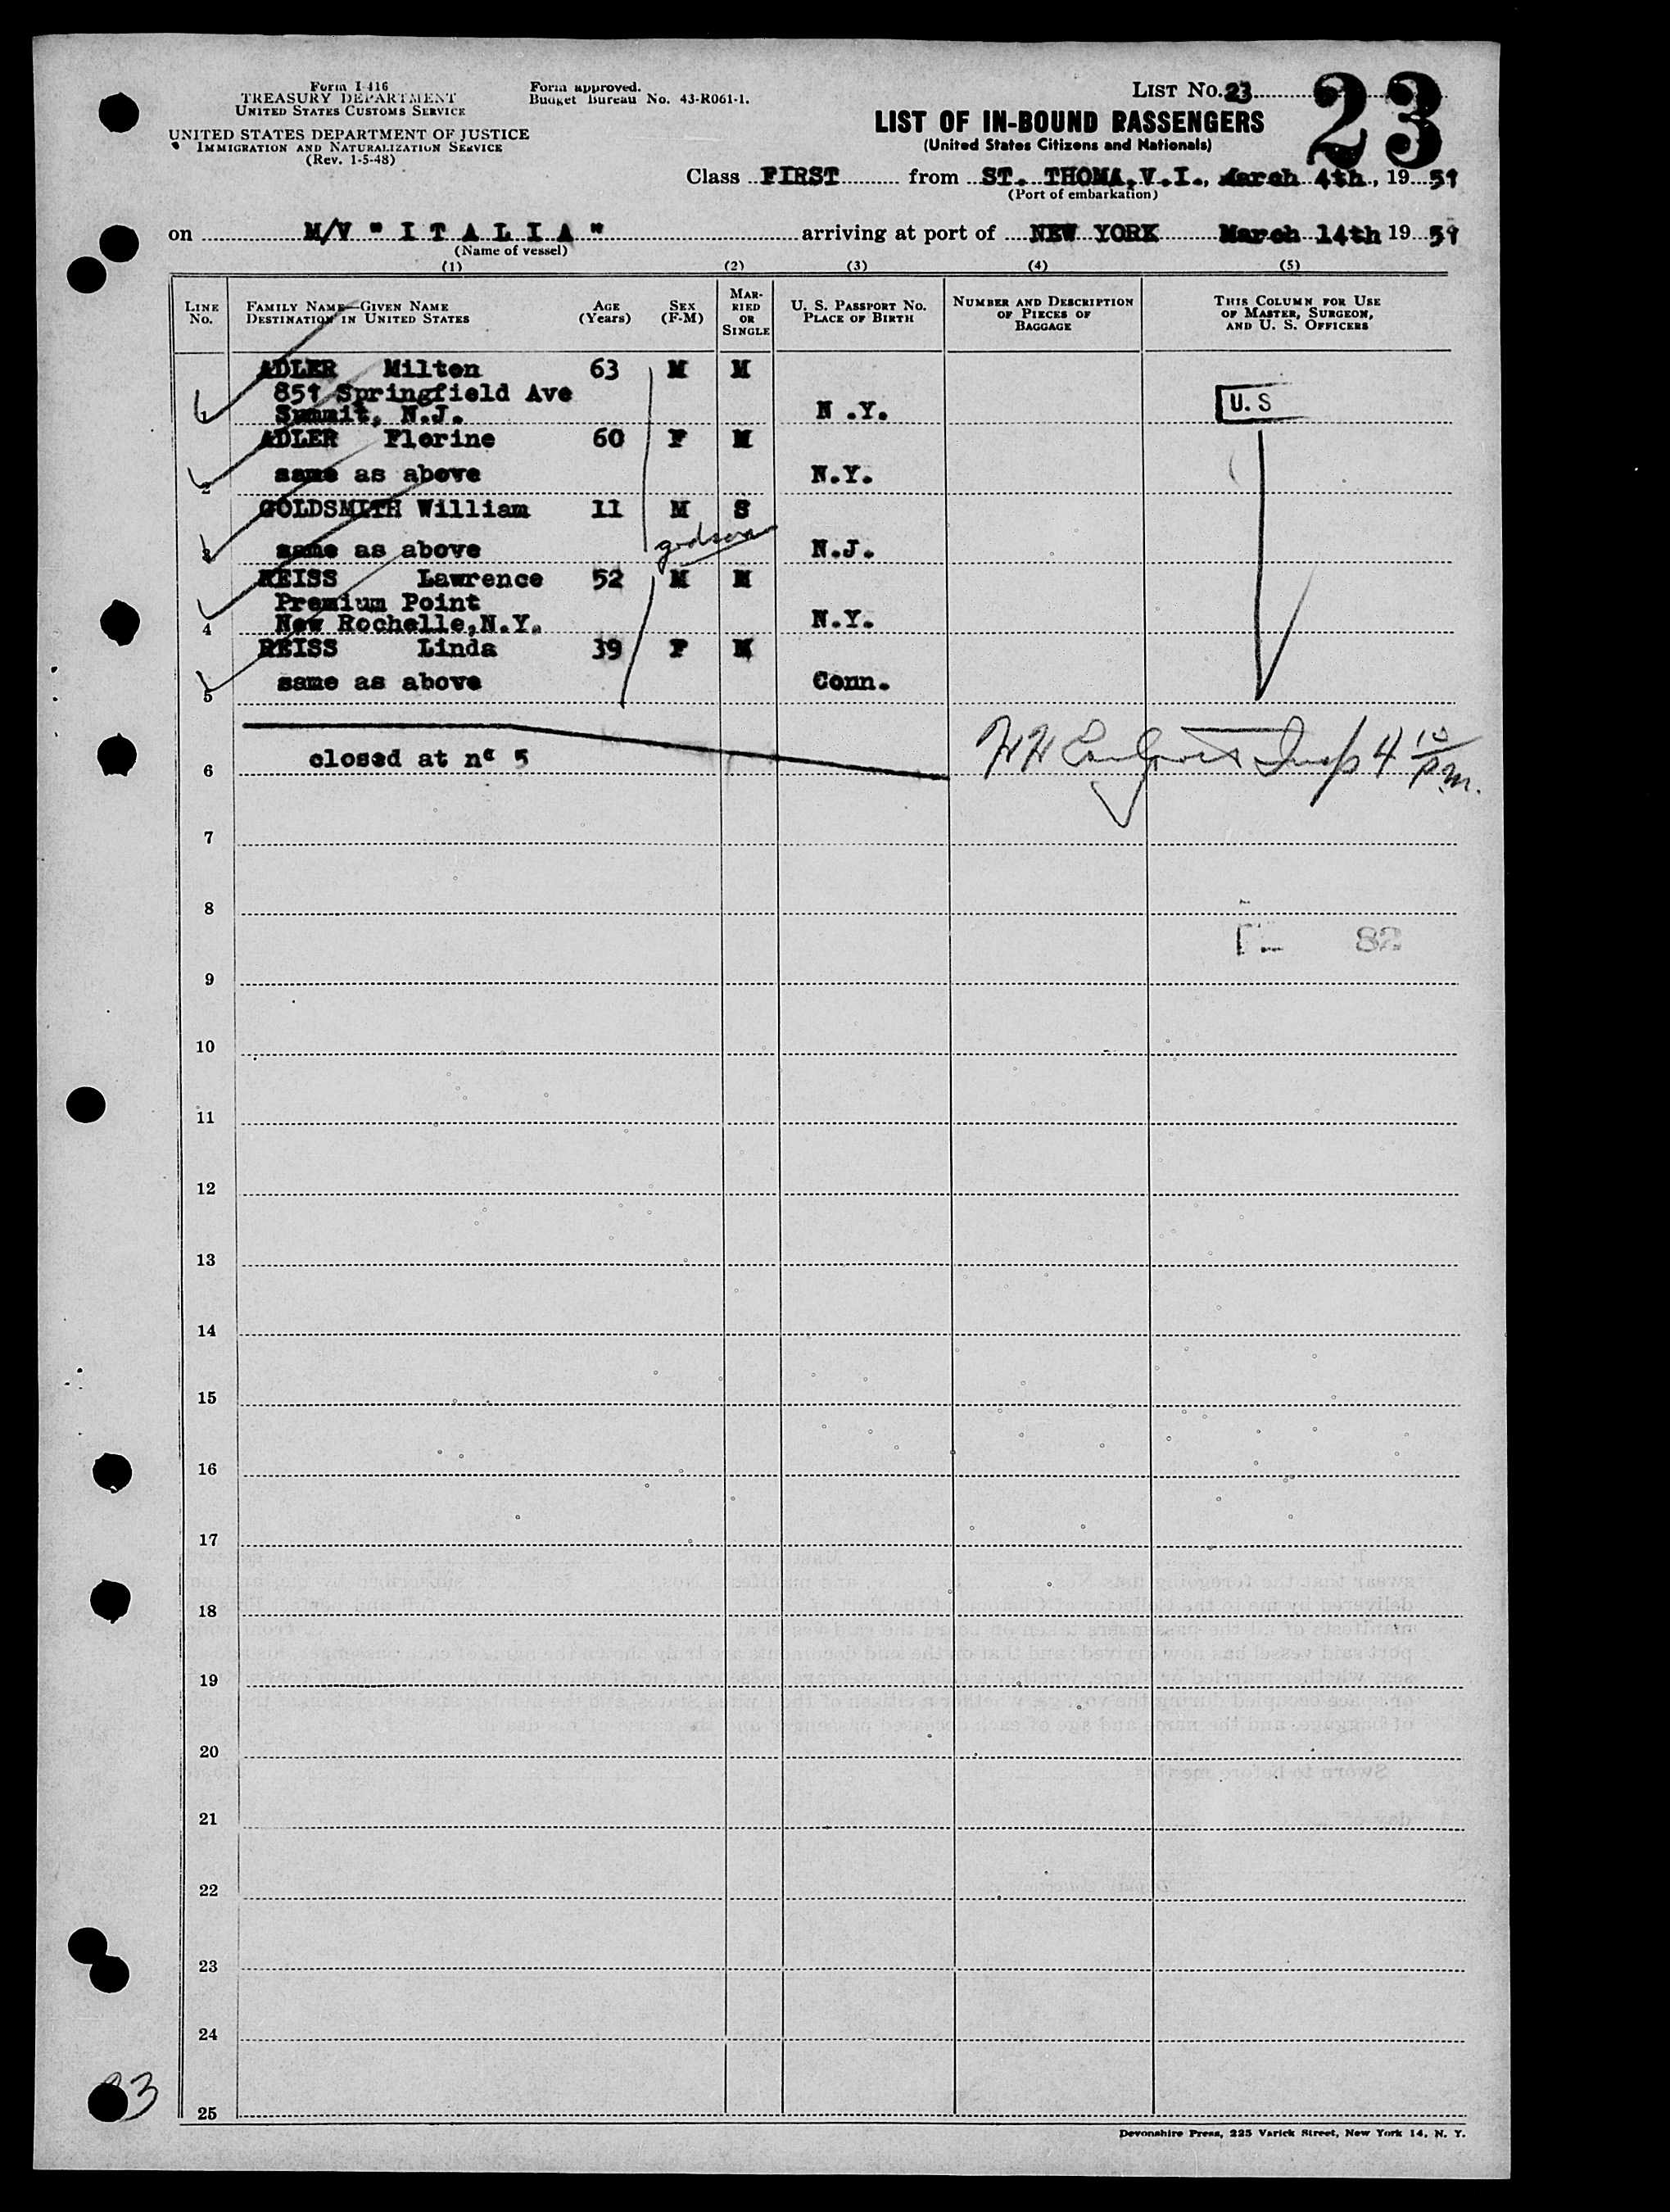 Form I-416
TREASURY DEPARTMENT
UNITED STATES CUSTOMS SERVICE
UNITED STATES DEPARTMENT OF JUSTICE
IMMIGRATION AND NATURALIZATION SERVICE
(Rev. 1-5-48)
Form approved.
Budget Bureau No. 43-R061-1.
LIST No. 23
23
LIST OF IN-BOUND PASSENGERS
(United States Citizens and Nationals)
Class FIRST from ST. THOMA.V.I., March 4th, 19 51
(Port of embarkation)
on M/V " I T A L I A " arriving at port of NEW YORK March 14th 19 51
(Name of vessel)
(1) (2) (3) (4) (5)
LINE No. FAMILY NAME—GIVEN NAME DESTINATION IN UNITED STATES AGE (Years) SEX (F-M) MARRIED OR SINGLE U. S. PASSPORT NO. PLACE OF BIRTH NUMBER AND DESCRIPTION OF PIECES OF BAGGAGE THIS COLUMN FOR USE OF MASTER, SURGEON, AND U. S. OFFICERS
ADLER Milton 63 M M
851 Springfield Ave
1 Summit, N.J. N .Y. U. S
ADLER Florine 60 F M
2 same as above N.Y.
GOLDSMITH William 11 M S
godson
3 same as above N.J.
REISS Lawrence 52 M M
Premium Point
4 New Rochelle,N.Y. N.Y.
REISS Linda 39 F M
5 same as above Conn.
6 closed at n° 5 Insp 4 10 p.m.
7
8
82
9
10
11
12
13
14
15
16
17
18
19
20
21
22
23
24
25
Devonshire Press, 225 Varick Street, New York 14, N. Y.